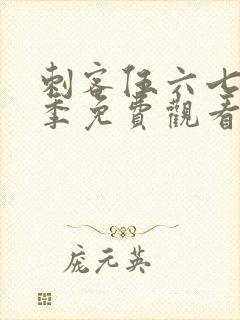 刺客伍六七
季免費觀看
庞元英